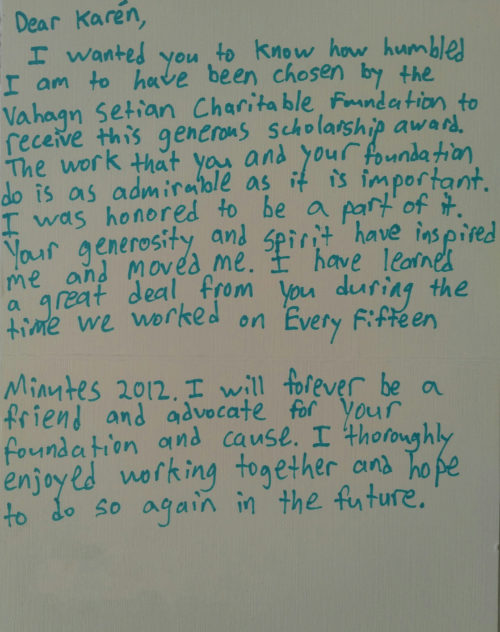 Dear Karen,
I wanted you to know how humbled
I am to have been chosen by the
Vahagn Setian Charitable Foundation to
receive this generous scholarship award.
The work that you and your foundation
do is as admirable as it is important.
I was honored to be a part of it.
Your generosity and spirit have inspired
me and moved me. I have learned
a great deal from you during the
time we worked on Every Fifteen
Minutes 2012. I will forever be a
friend and advocate for your
foundation and cause. I thoroughly
enjoyed working together and hope
to do so again in the future.